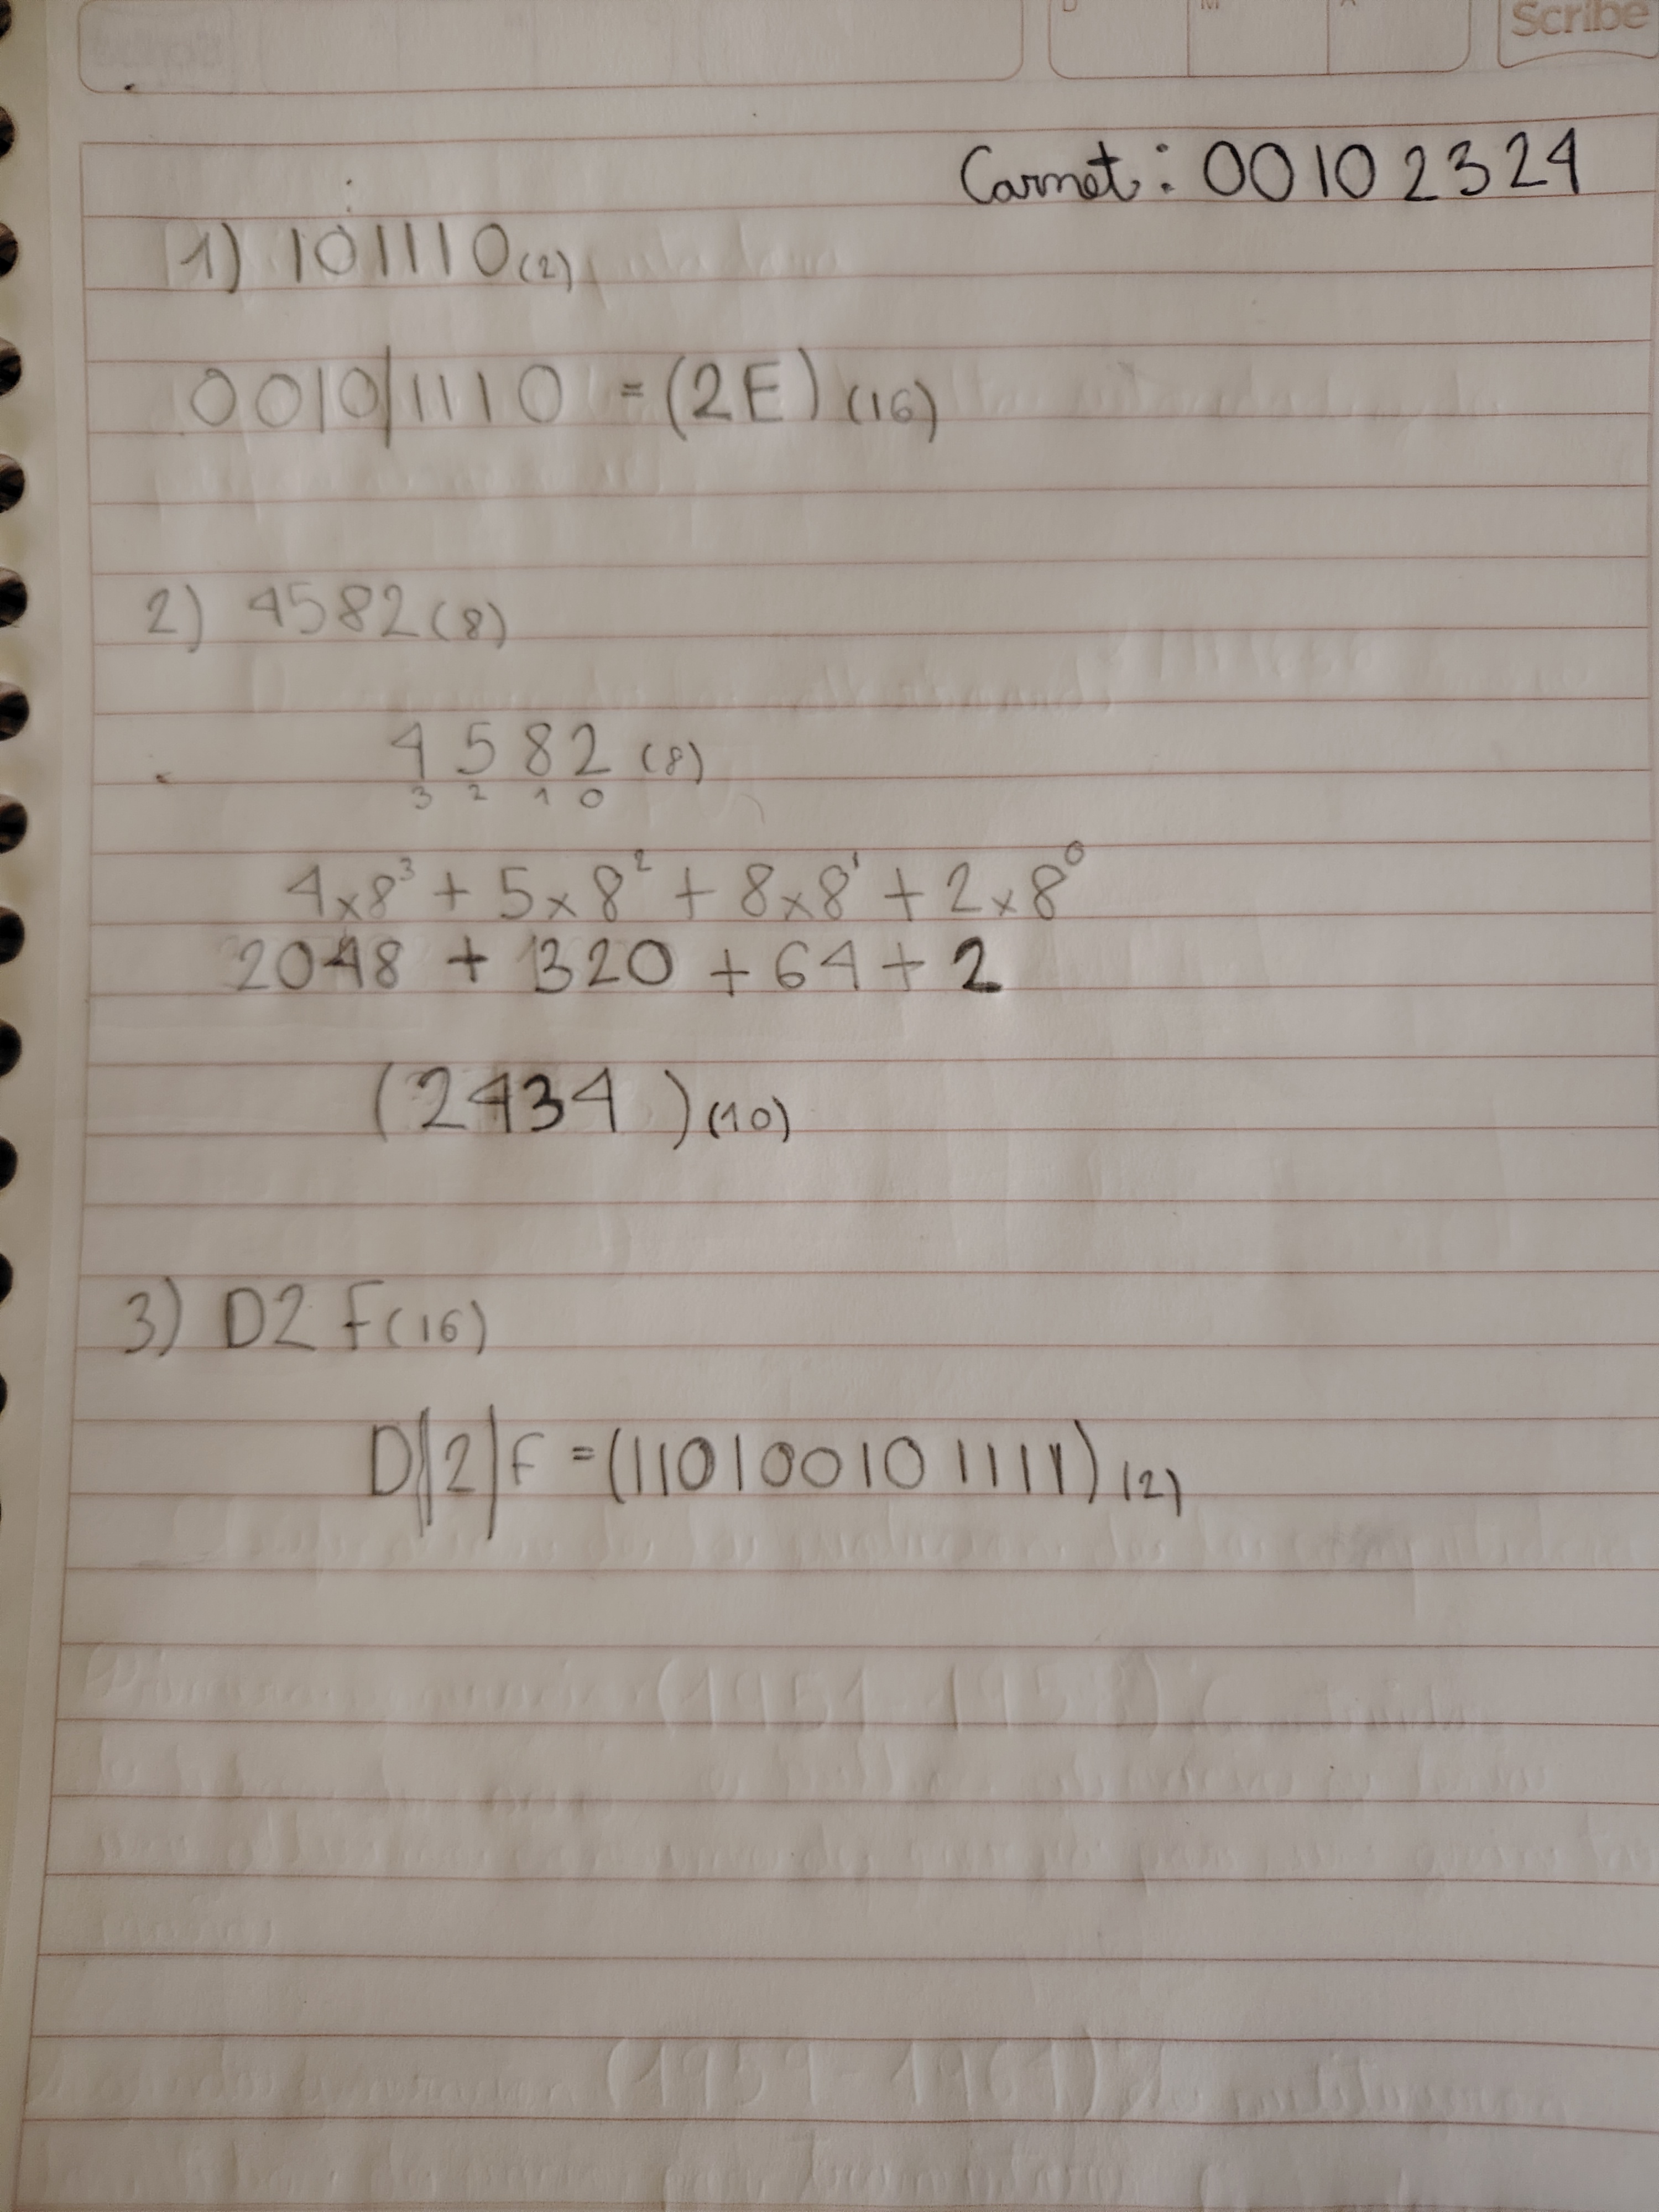 Scribe
Carnet: 00102324
1) 101110(2)
0010/1110 = (2E)(16)
2) 4582(8)
4 5 8 2 (8)
3 2 1 0
4x8³ + 5x8² + 8x8¹ + 2x8⁰
2048 + 320 + 64 + 2
(2434)(10)
3) D2F(16)
D|2|F = (110100101111)(2)